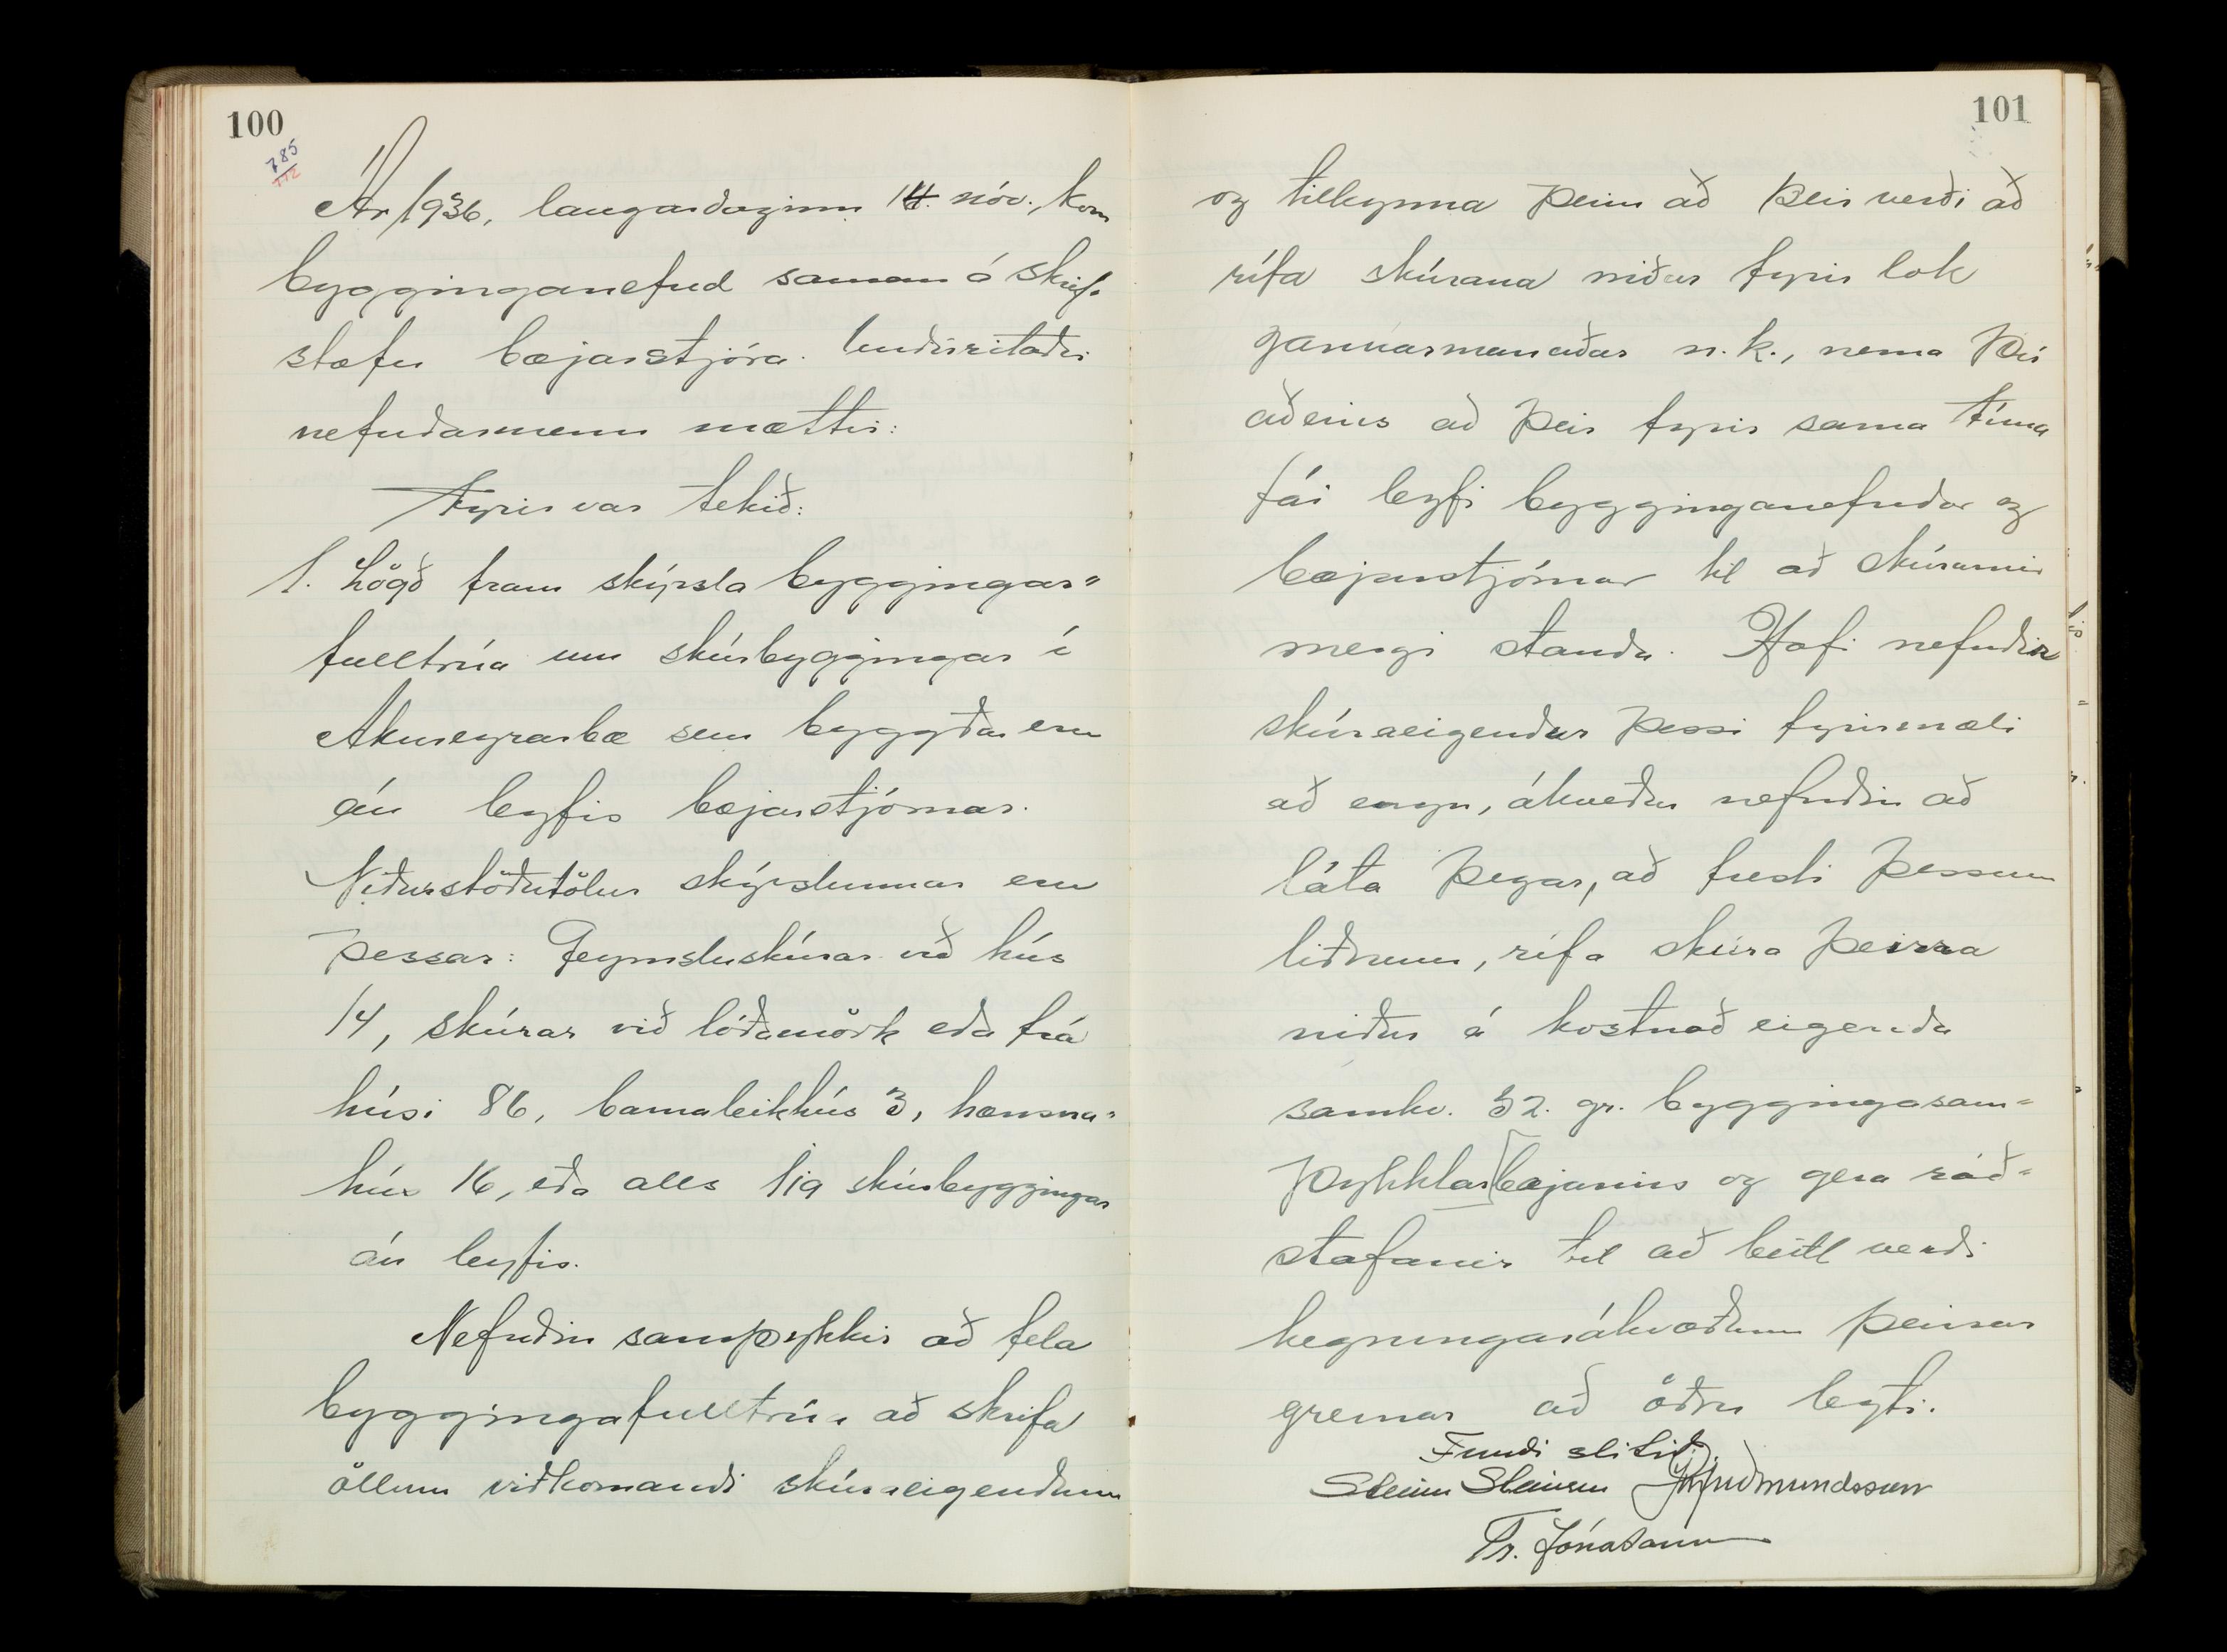 100
785
772
Ár 1936, laugardaginn 14. nóv., kom
bygginganefnd saman á skrif-
stofu bæjarstjóra. Undirritaðir
nefndarmenn mættir:
Fyrir var tekið:
1. Lögð fram skýrsla byggingar=
fulltrúa um skúrbyggingar í
Akureyrarbæ sem byggðar eru
án leyfis bæjarstjórnar.
Niðurstöðutölur skýrslunnar eru
þessar: Geymsluskúrar við hús
14, skúrar við lóðamörk eða frá
húsi 86, barnaleikhús 3, hænsna-
hús 16, eða alls 119 skúrbyggingar
án leyfis.
Nefndin samþykkir að fela
byggingafulltrúa að skrifa
öllum viðkomandi skúraeigendum
101
og tilkynna þeim að þeir verði að
rífa skúrana niður fyrir lok
janúarmánaðar n.k., nema því
aðeins að þeir fyrir sama tíma
fái leyfi bygginganefndar og
bæjarstjórnar til að skúrarnir
megi standa. Hafi nefndir
skúraeigendur þessi fyrirmæli
að engu, ákveður nefndin að
láta þegar, að fresti þessum
liðnum, rífa skúra þeirra
niður á kostnað eigenda
samkv. 32. gr. byggingasam=
þykktar bæjarins og gera ráð=
stafanir til að beitt verði
hegningarákvæðum þeirrar
greinar að öðru leyti.
Fundi slitið.
Steinn Steinsen Guðmundsson
Tr. Jónatansson